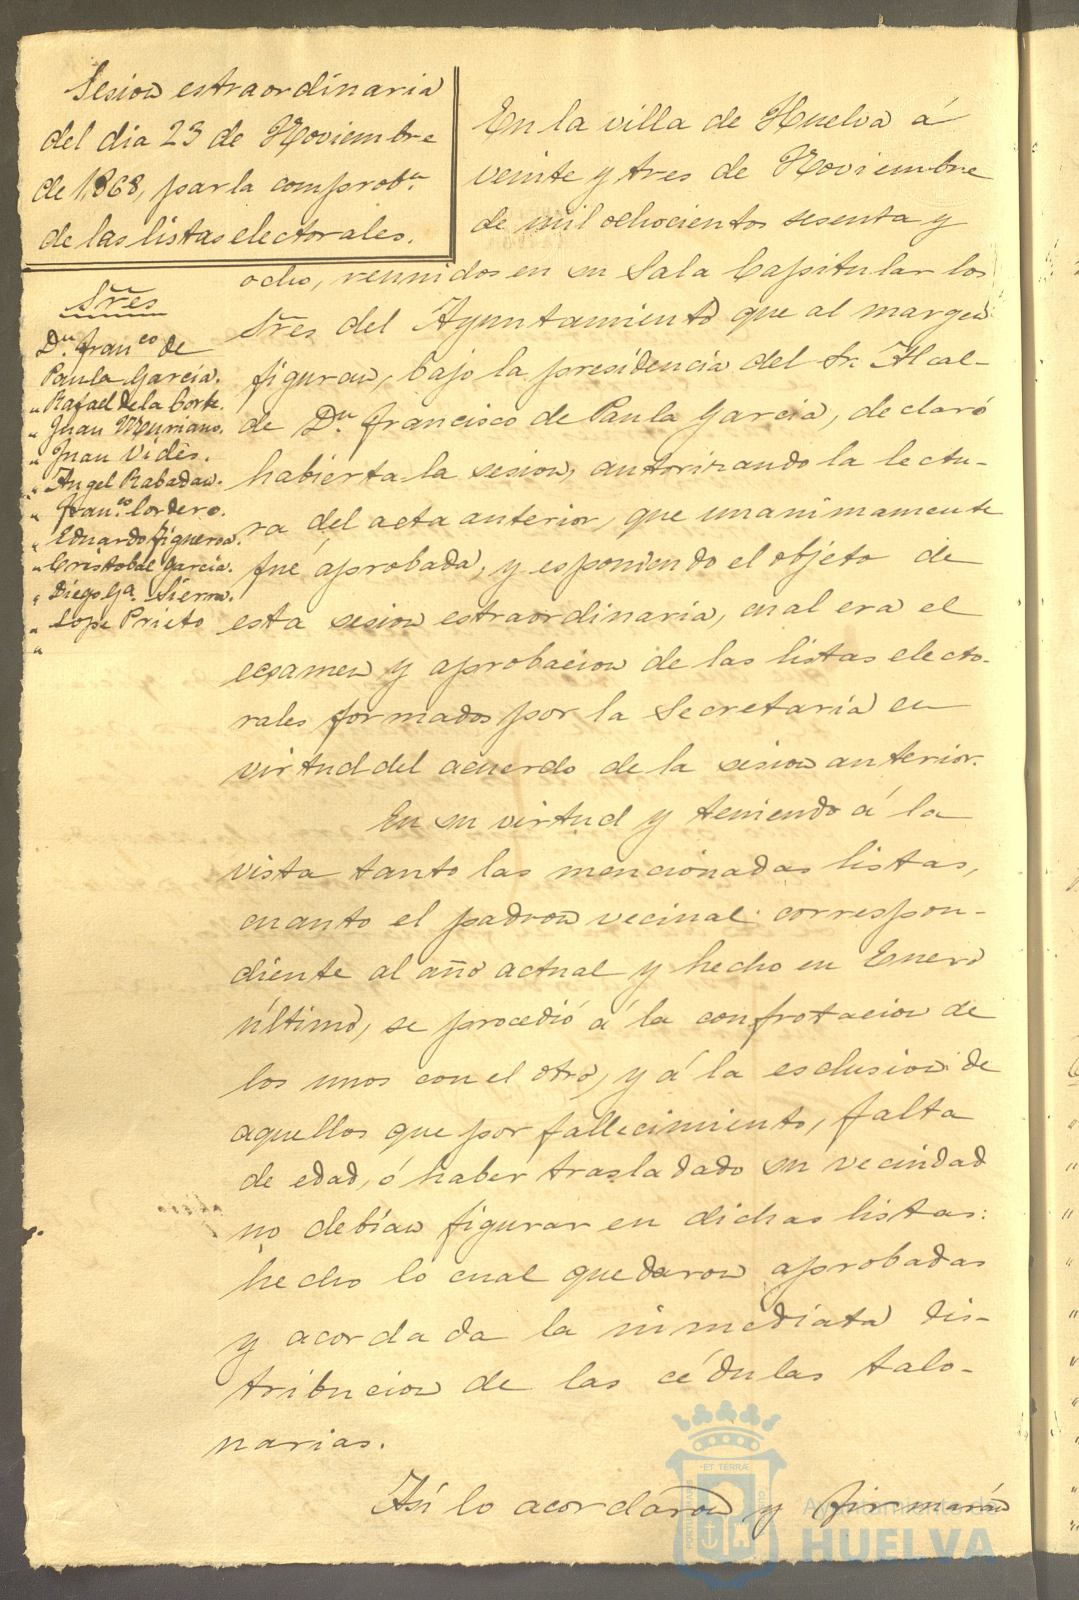 Sesion estraordinaria
del dia 23 de Noviembre
de 1.868, par la comprobn
de las listas electorales.
Sres
Dn. Franco de
Paula Garcia.
" Rafael de la Corte.
" Juan Muriano.
" Juan Vides.
" Angel Rabadan.
" Franco Cordero.
" Eduardo Figueroa.
" Cristobal Garcia.
" Diego Ga. Sierra.
" Lope Prieto
"
En la villa de Huelva á
veinte y tres de Noviembre
de mil ochocientos sesenta y
ocho, reunidos en su Sala Capitular los
Sres del Ayuntamiento que al margen
figuran, bajo la presidencia del Sr. Alcal-
de Dn. Francisco de Paula Garcia, declaró
habierta la sesion, autorizando la lectu-
ra del acta anterior, que unanimamente
fué aprobada, y esponiendo el objeto de
esta sesion estraordinaria, cual era el
ecsamen y aprobacion de las listas electo-
rales formados por la Secretaría en
virtud del acuerdo de la sesion anterior.
En su virtud y teniendo á la
vista tanto las mencionadas listas,
cuanto el padron vecinal correspon-
diente al año actual y hecho en Enero
último, se procedió á la confrotacion de
los unos con el otro, y á la esclusion de
aquellos que por fallecimiento, falta
de edad, ó haber trasladado su vecindad
no debían figurar en dichas listas:
hecho lo cual quedaron aprobadas
y acordada la inmediata dis-
tribucion de las cédulas talo-
narias.
Así lo acordaron y firmarán
Ayuntamiento de
HUELVA